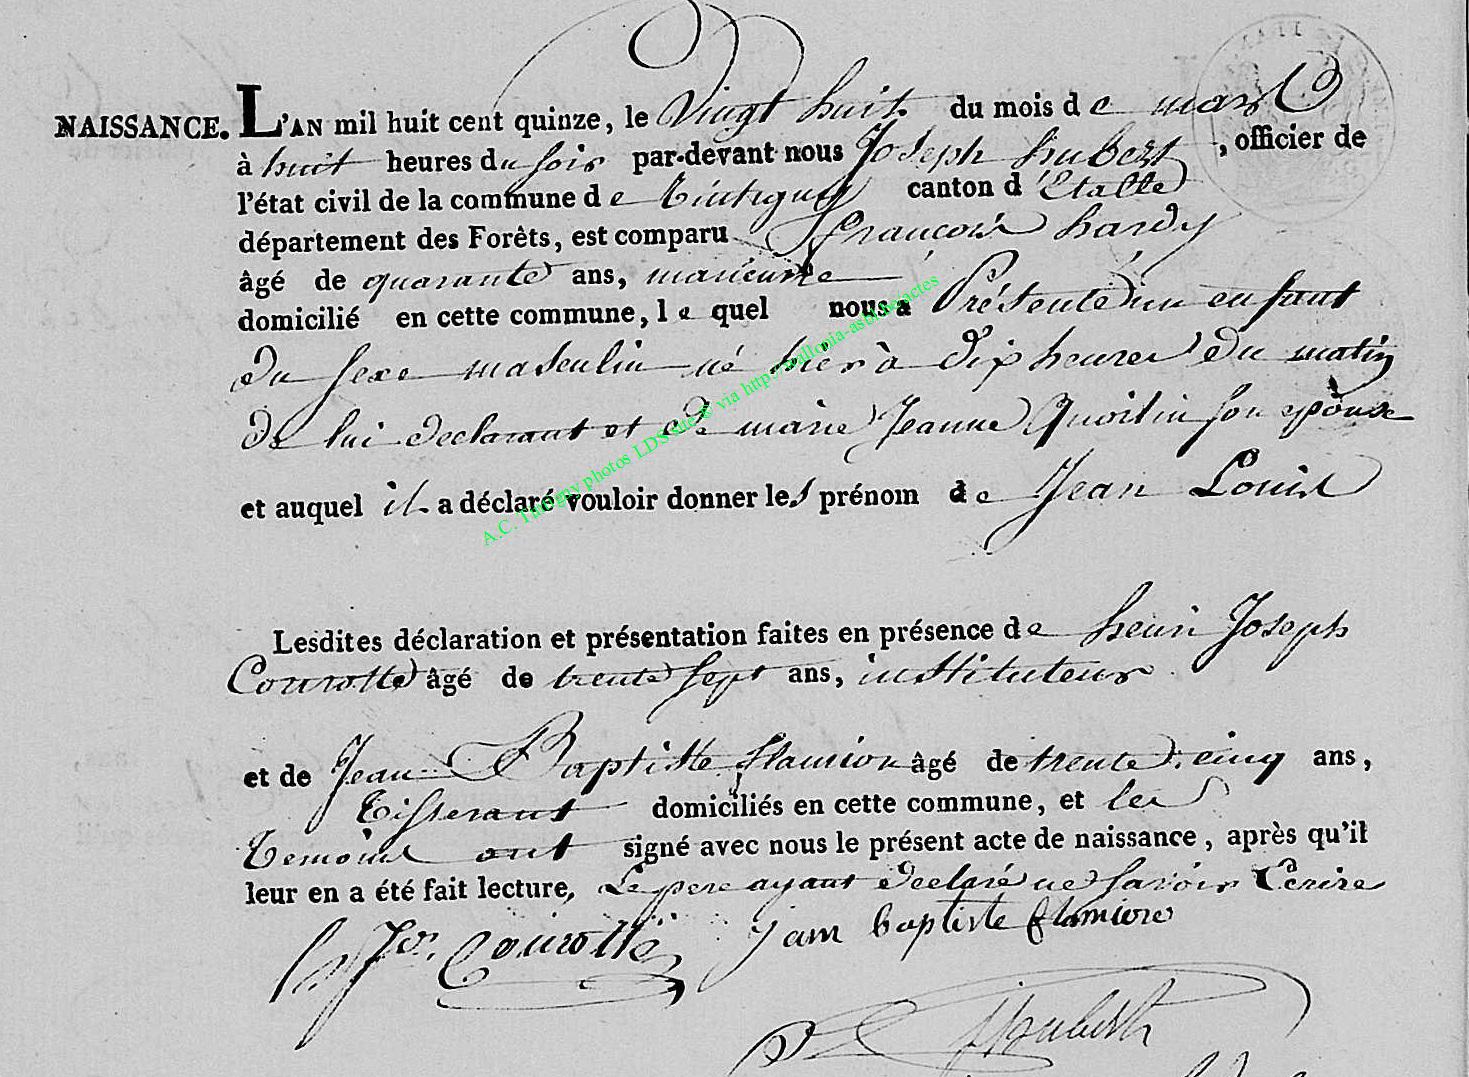 NAISSANCE. L'AN mil huit cent quinze, le Vingt huit du mois de mars
à huit heures du soir par-devant nous Joseph hubert, officier de
l'état civil de la commune de Tintigny canton d'Etalle
département des Forêts, est comparu François hardy
âgé de quarante ans,
domicilié en cette commune, lequel nous a Présenté un enfant
du sexe masculin né hier à dix heures du matin
de lui declarant et de marie Jeanne Quoilin son epouse
et auquel il a déclaré vouloir donner les prénom de Jean Louis
Lesdites déclaration et présentation faites en présence de henri Joseph
Courotte âgé de trente sept ans, instituteur
et de Jean Baptiste flamion âgé de trente cinq ans,
Tisserant domiciliés en cette commune, et les
Temoins ont signé avec nous le présent acte de naissance, après qu'il
leur en a été fait lecture, Le pere ayant declaré ne savoir Ecrire
h Jos. Courotte jam baptiste flamion
Hubert
A.C. Tintigny photos LDS site & via http://wallonia-asbl.be/actes